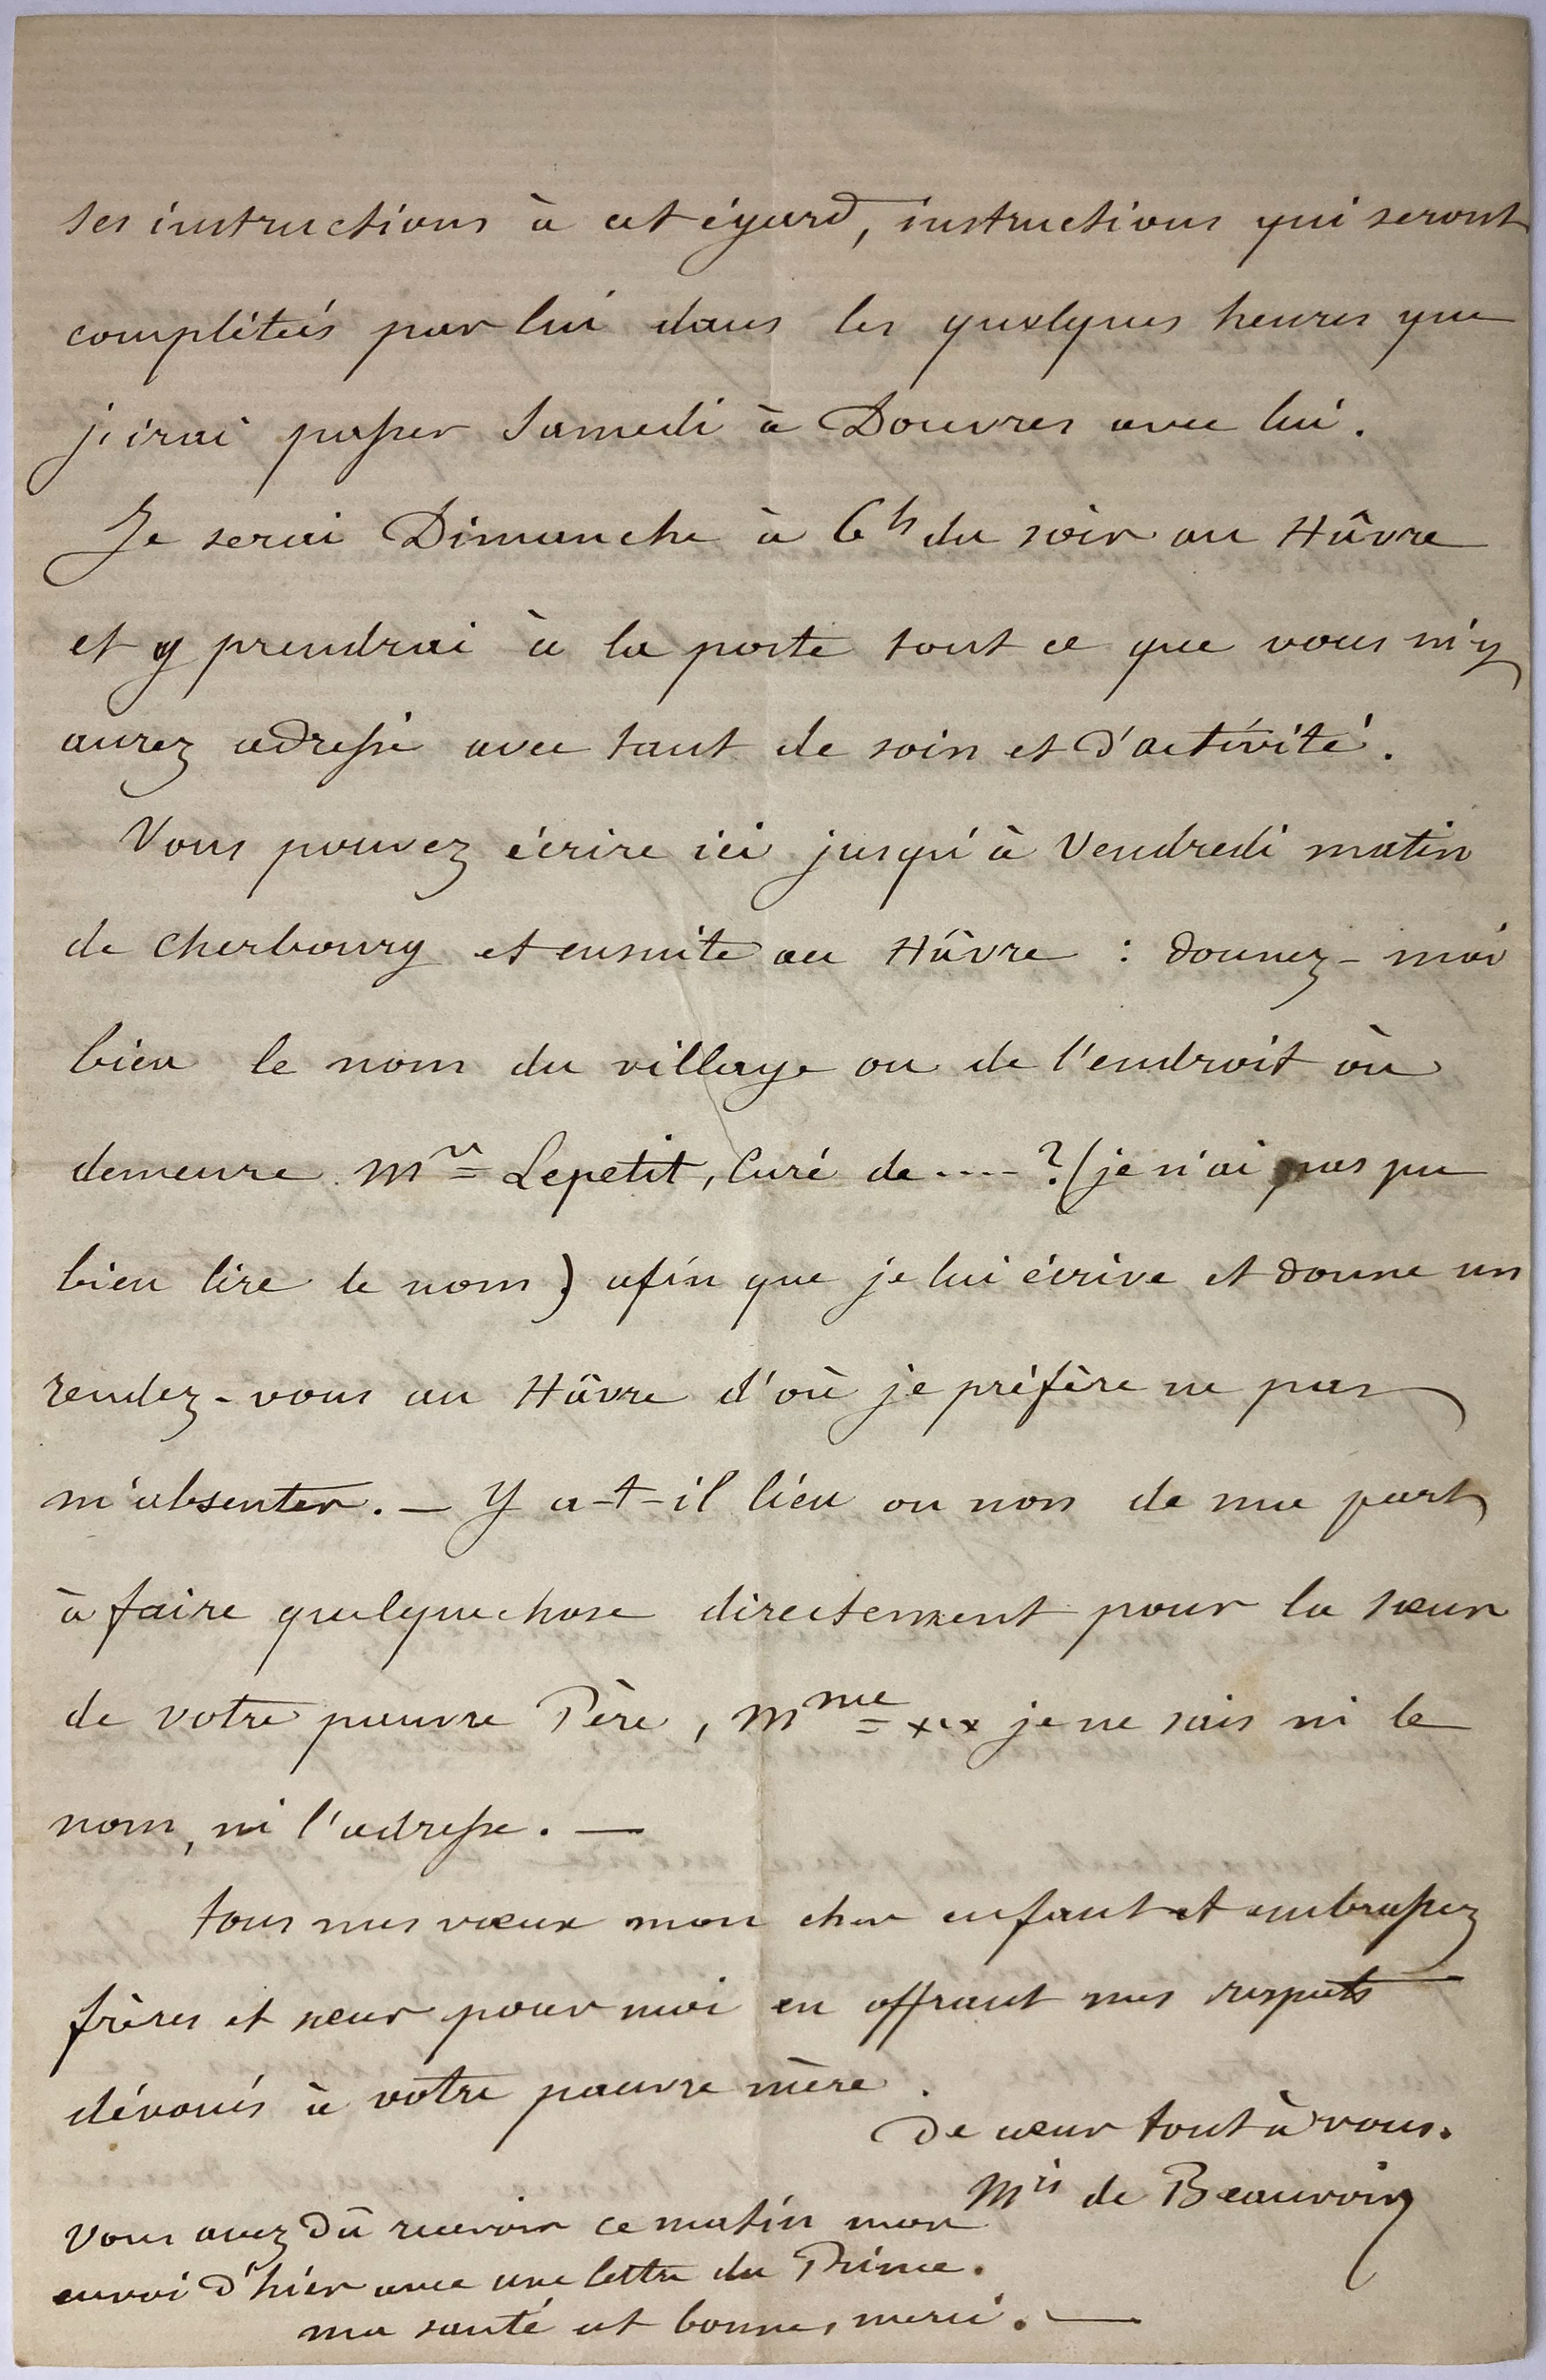 ses instructions à cet égard, instructions qui seront
complétées par lui dans les quelques heures que
j'irai passer Samedi à Douvres avec lui.
Je serai Dimanche à 6h du soir au Hâvre
et y prendrai à la poste tout ce que vous m'y
aurez adressé avec tant de soin et d'activité.
Vous pouvez écrire ici jusqu'à Vendredi matin
de Cherbourg et ensuite au Hâvre : donnez-moi
bien le nom du village ou de l'endroit où
demeure Mr Lepetit, Curé de .... ? (je n'ai pas pu
bien lire le nom) afin que je lui écrive et donne un
rendez-vous au Hâvre d'où je préfère ne pas
m'absenter. — Y a-t-il lieu ou non de ma part
à faire quelquechose directement pour la sœur
de votre pauvre Père, Mme xxx je ne sais ni le
nom, ni l'adresse. —
tous mes vœux mon cher enfant et embrassez
frères et sœur pour moi en offrant mes respects
dévoués à votre pauvre mère.
De cœur tout à vous.
Mis de Beauvoir
Vous avez dû recevoir ce matin mon
envoi d'hier avec une lettre du Prince.
ma santé est bonne, merci. —